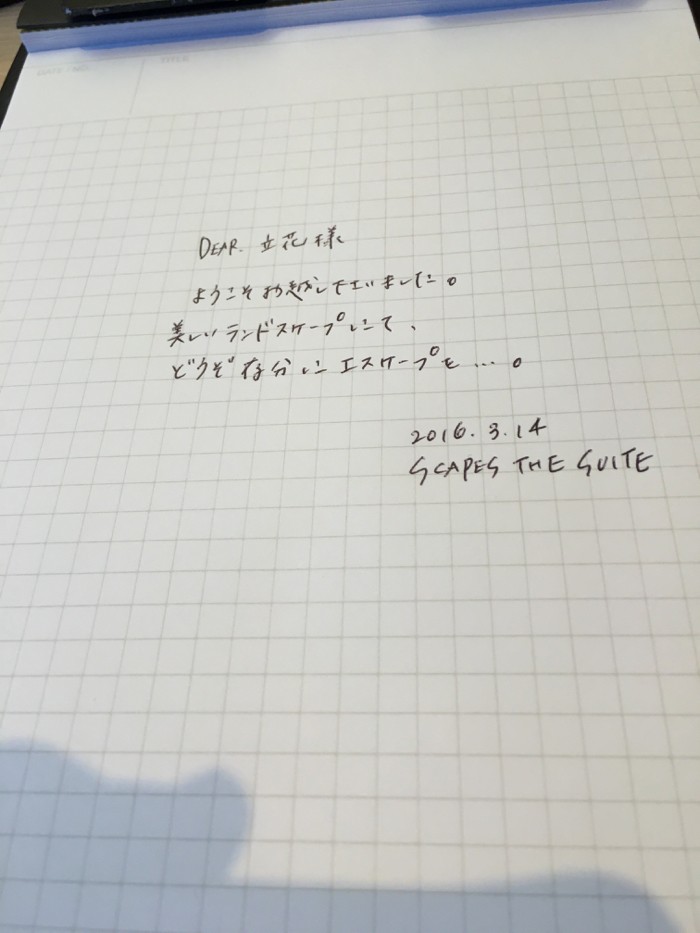 DATE / NO.
TITLE
DEAR. 立花様
ようこそお越し下さいました。
美しいランドスケープにて、
どうぞ存分にエスケープを…。
2016.3.14
SCAPES THE SUITE